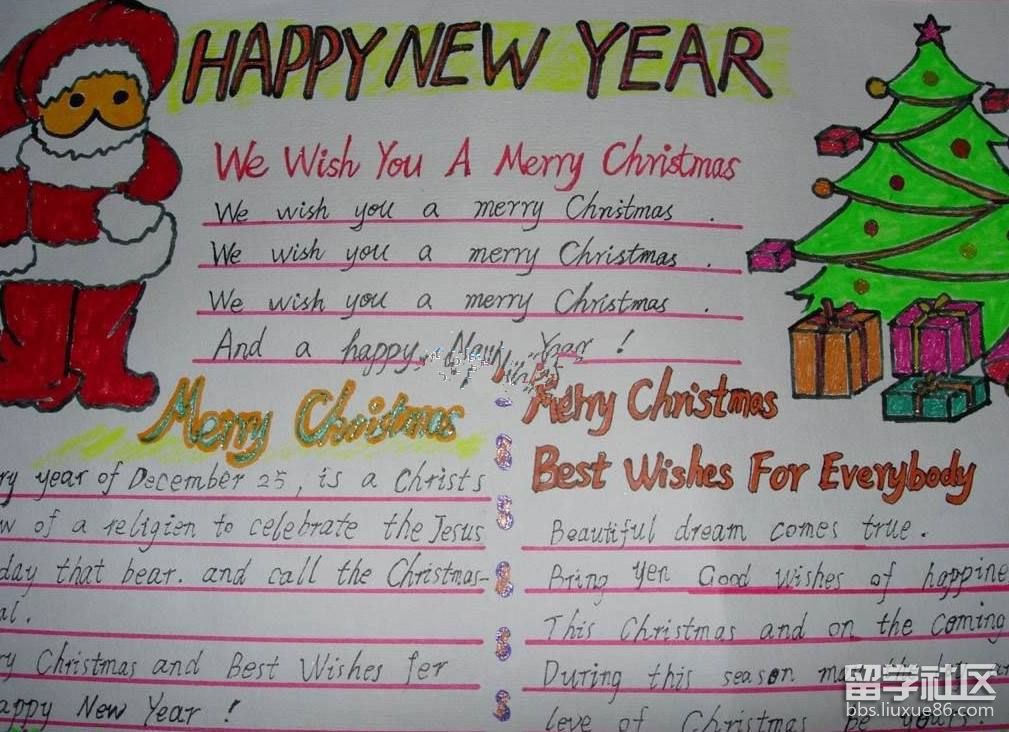 HAPPY NEW YEAR
We Wish You A Merry Christmas
We wish you a merry Christmas .
We wish you a merry Christmas .
We wish you a merry Christmas .
And a happy Year !
Merry Christmas
ry year of December 25, is a Christs
w of a religien to celebrate the Jesus
day that bear. and call the Christmas-
al.
ry Christmas and Best Wishes fer
appy New Year !
Merry Christmas
Best Wishes For Everybody
Beautiful dream comes true.
Bring yen Good wishes of happine
This Christmas and on the coming
During this season may the
leve of Christmas be yours.
留学社区
bbs.liuxue86.com